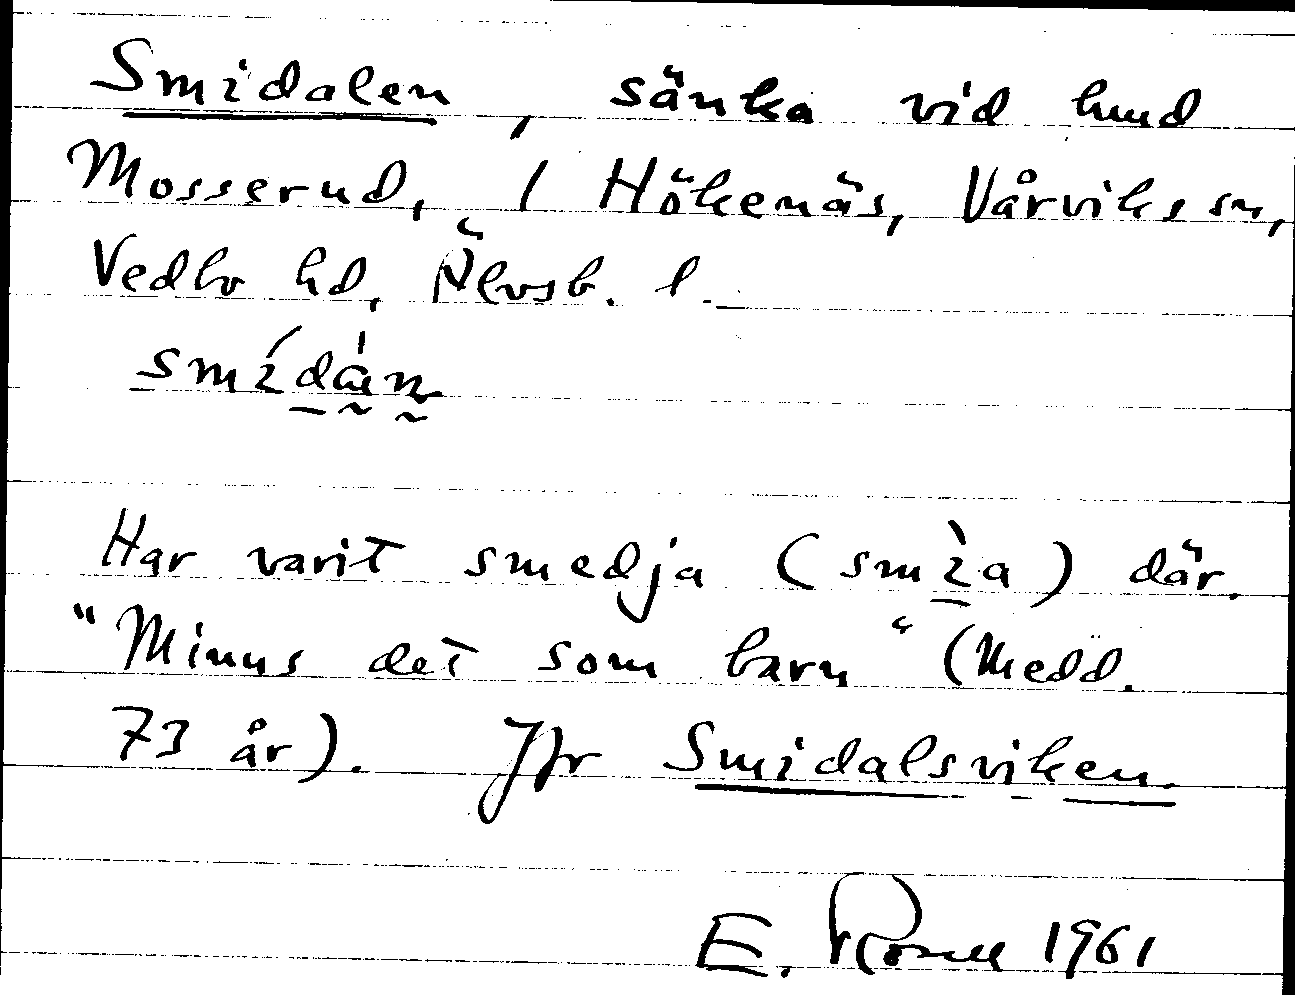 Smidalen, sänka vid lund
Mosserud, 1 Hökenäs, Vårviks sn,
Vedbo hd, Älvsb. l.
smídàn
Har varit smedja (smìa) där.
"Minns det som barn" (Medd.
73 år). Jfr Smidalsviken.
E. 1961